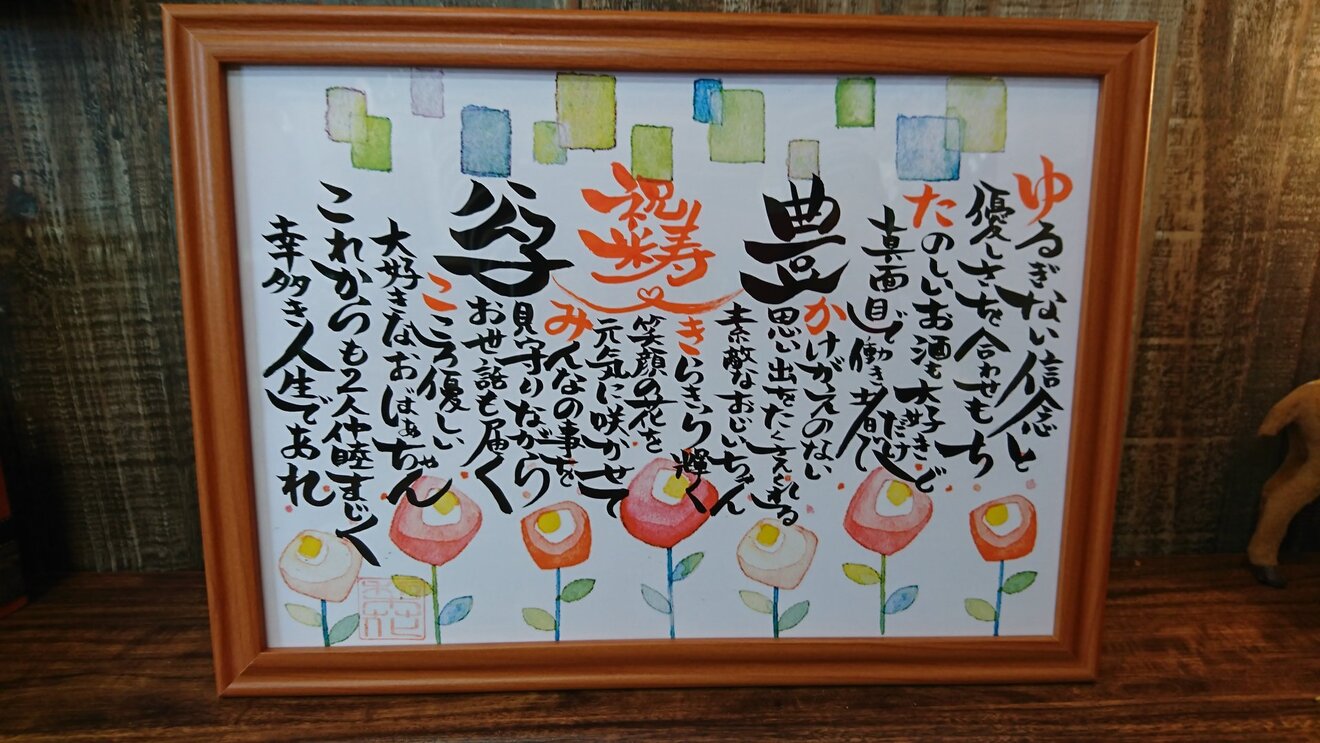 ゆるぎない信念と
優しさを合わせもち
たのしいお酒も大好きだけど
真面目で働き者で
豊
かけがえのない
思い出をたくさんくれる
素敵なおじいちゃん
祝
米寿
きらきら輝く
笑顔の花を
元気に咲かせて
みんなの事を
見守りながら
お世話も届く
公子
こころ優しい
大好きなおばぁちゃん
これからも2人仲睦まじく
幸多き人生であれ